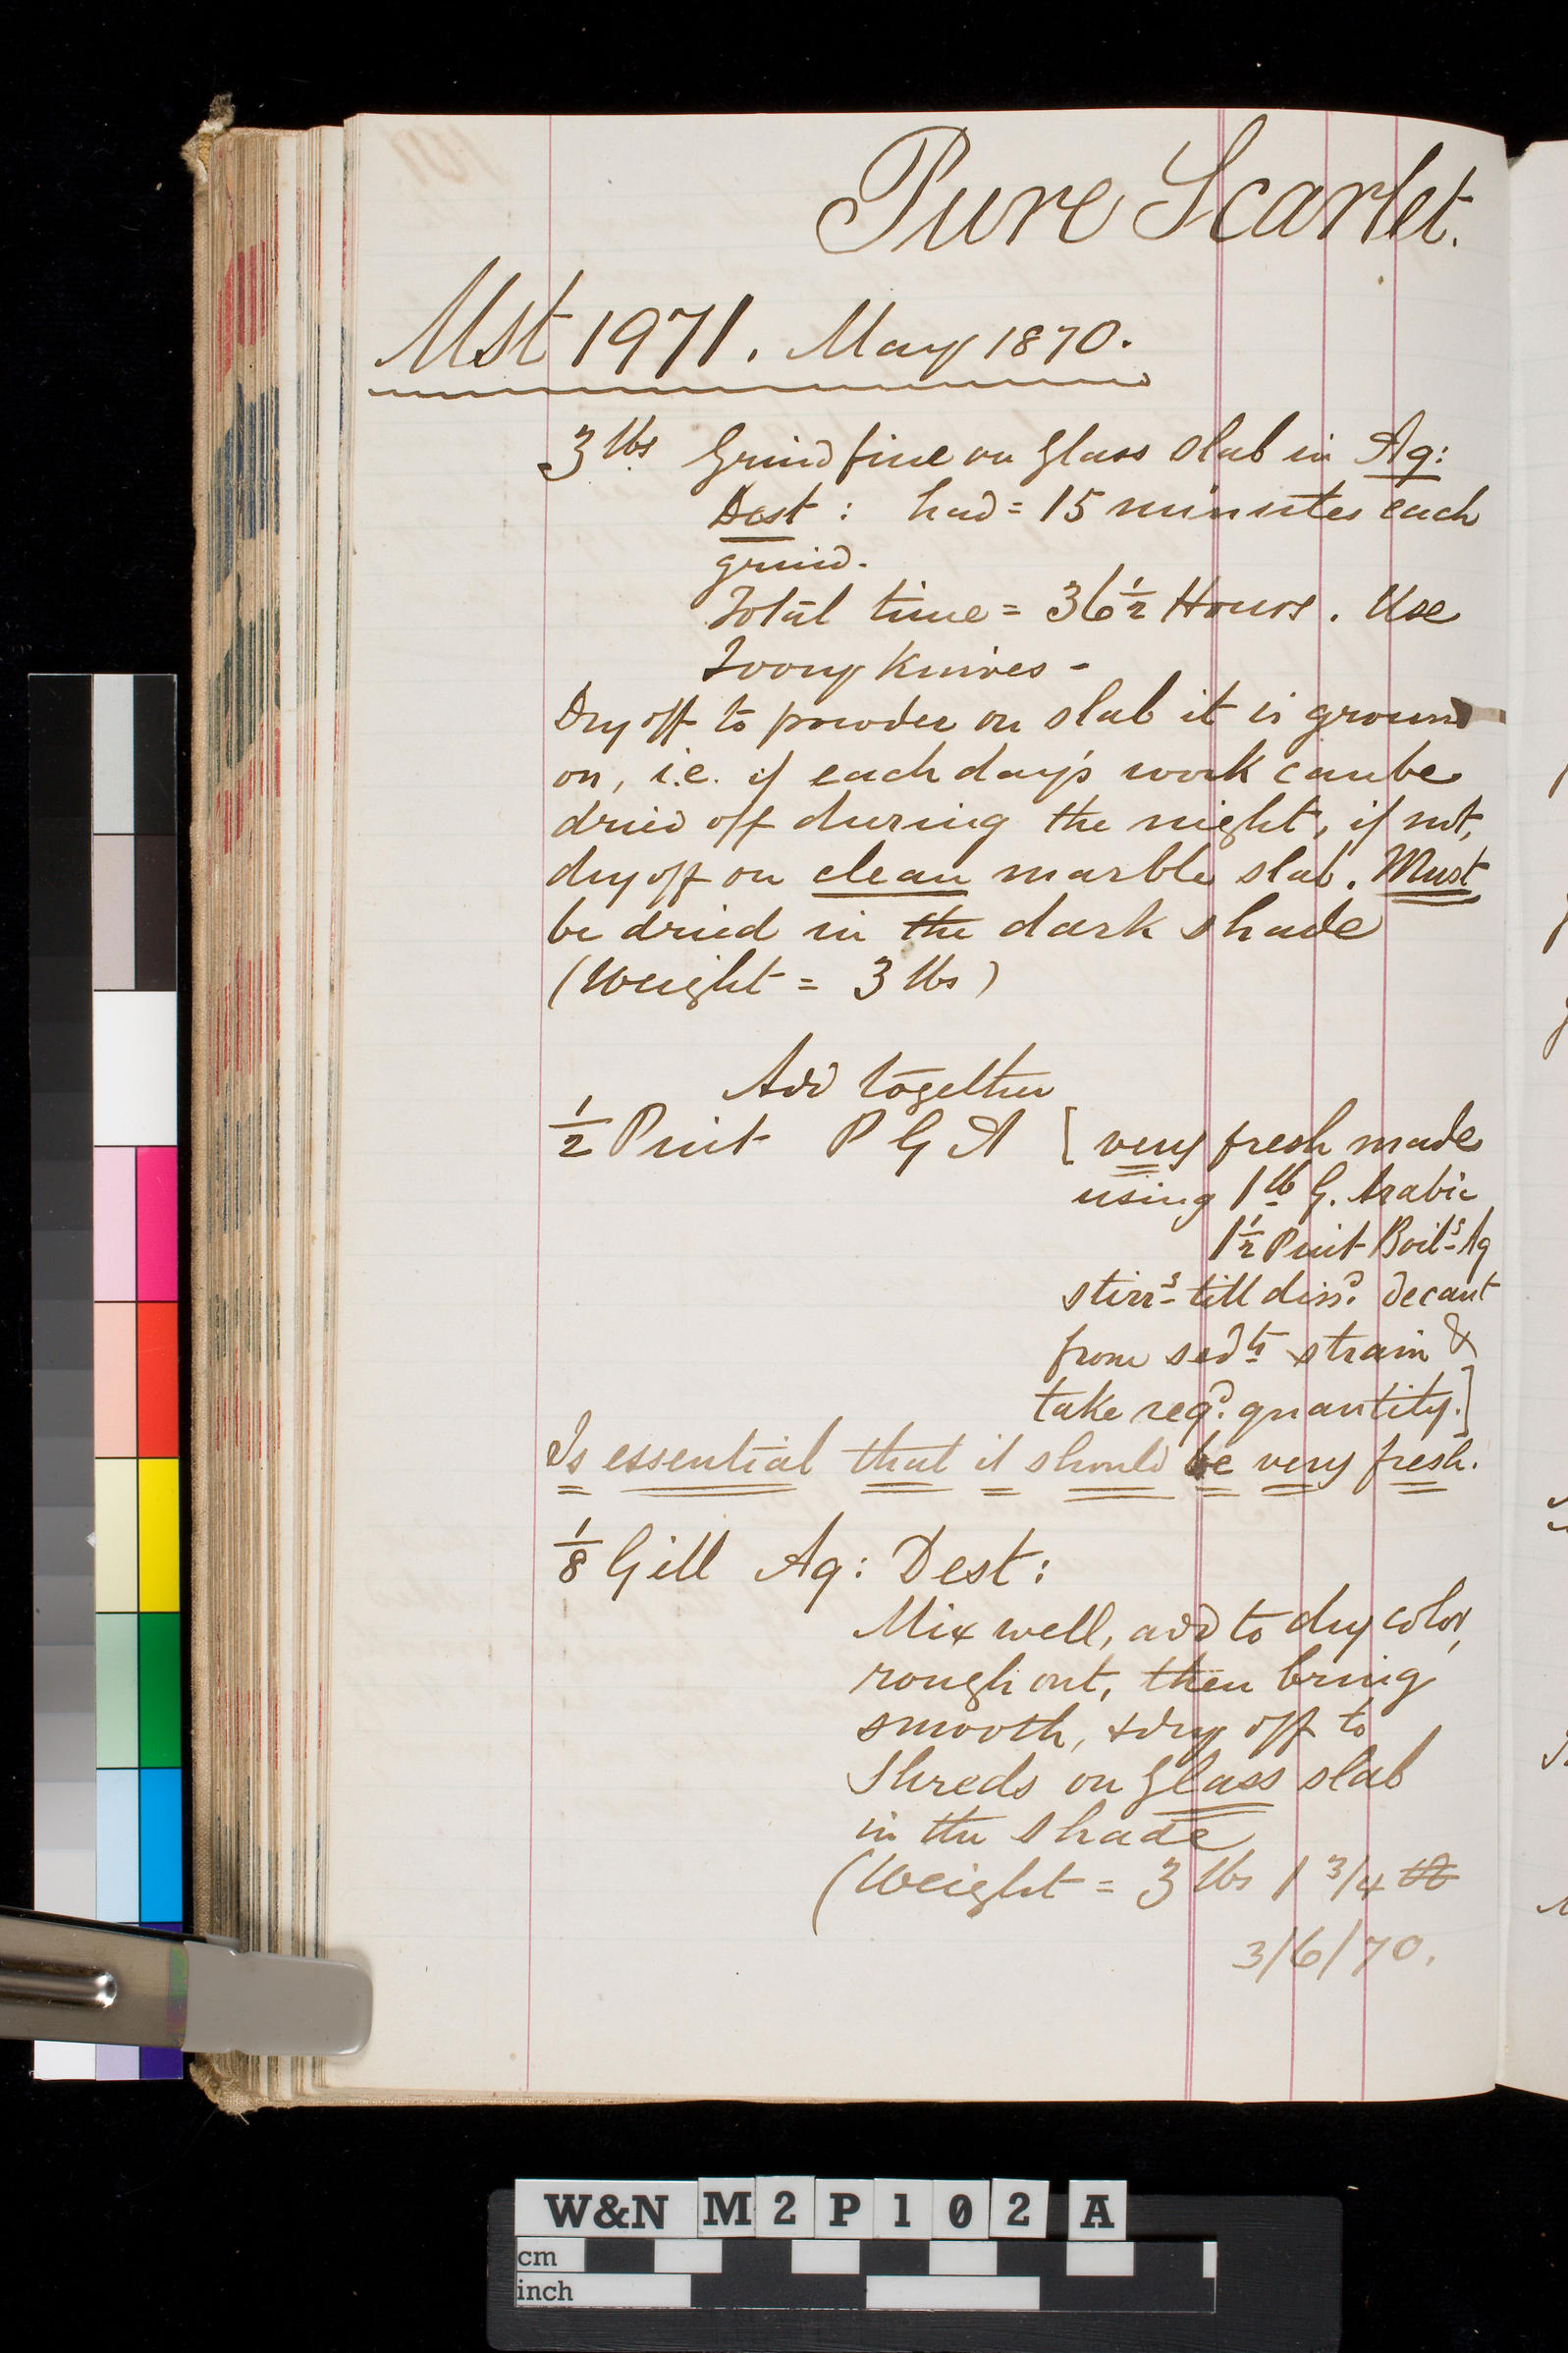 Pure Scarlet.
Mst 1971. May 1870.
3 lbs Grind fine on Glass slab in Aq:
Dest: had = 15 minutes each
grind.
Total time = 36 1/2 Hours. Use
Ivory Knives -
Dry off to powder on slab it is ground
on, i.e. if each day's work can be
dried off during the night, if not,
dry off on clean marble slab. Must
be dried in the dark shade
(Weight = 3 lbs)
Add together
1/2 Pint P G A [very fresh made
using 1 lb G. Arabic
1 1/2 Pint Boilg Aq
stirrg till dissd. decant
from sedts strain &
take reqd. quantity.]
Is essential that it should be very fresh.
1/8 Gill Aq: Dest:
Mix well, add to dry color,
rough out, then bring
smooth, & dry off to
Shreds on Glass slab
in the shade
(Weight = 3 lbs 1 3/4
3/6/70.
W&N M2P102 A
cm
inch